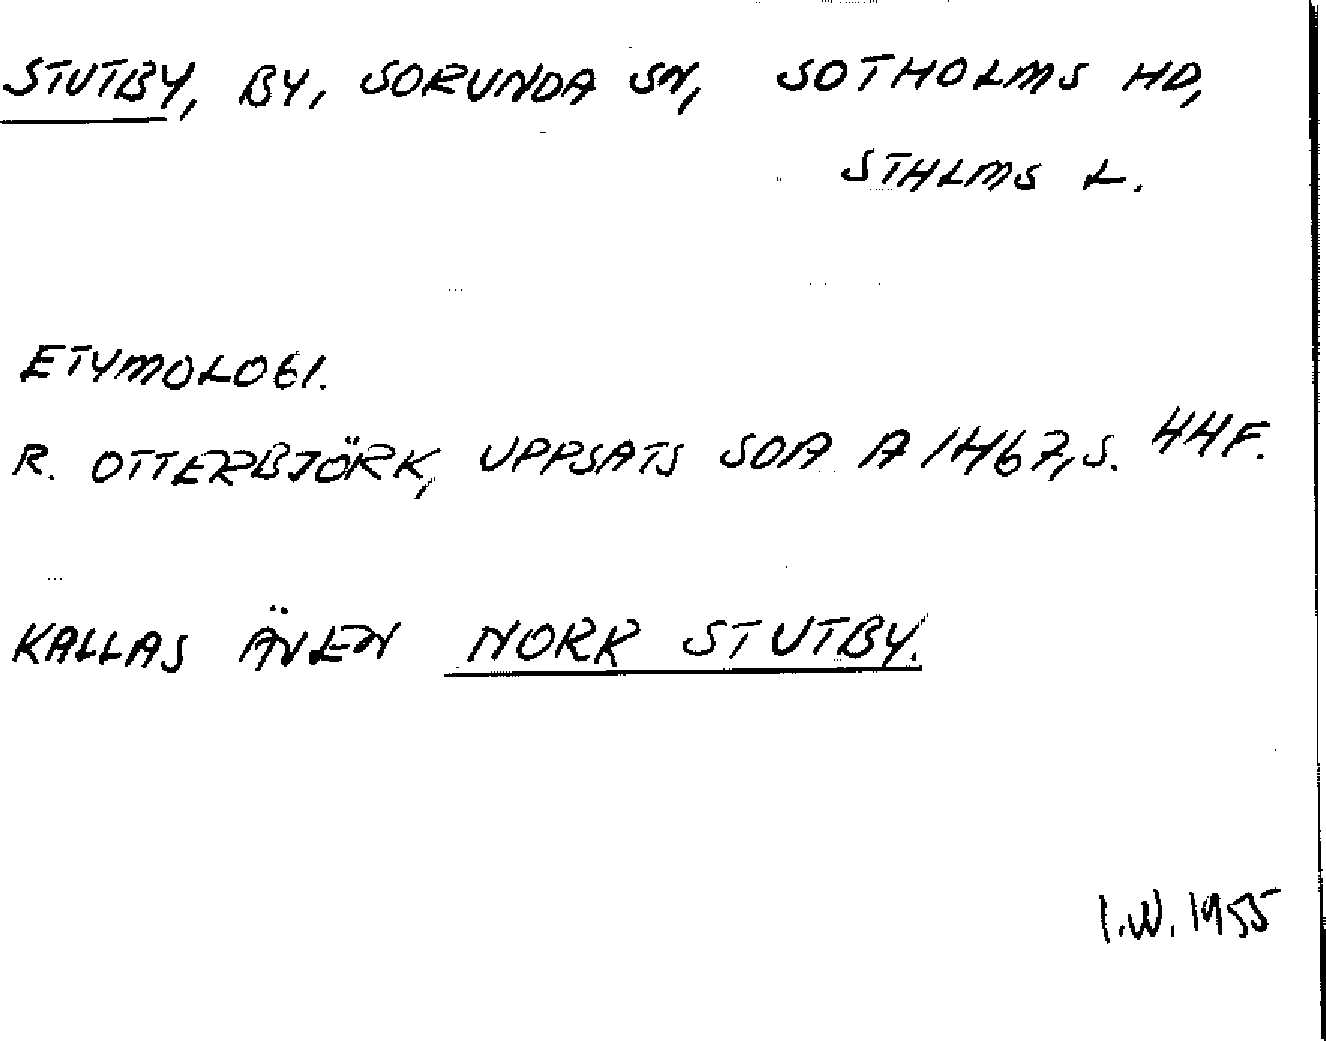 STUTBY, BY, SORUNDA SN, SOTHOLMS HD,
STHLMS L.
ETYMOLOGI.
R. OTTERBJÖRK, UPPSATS SOA A 1467, S. 44F.
KALLAS ÄVEN NORR STUTBY.
I.W. 1955